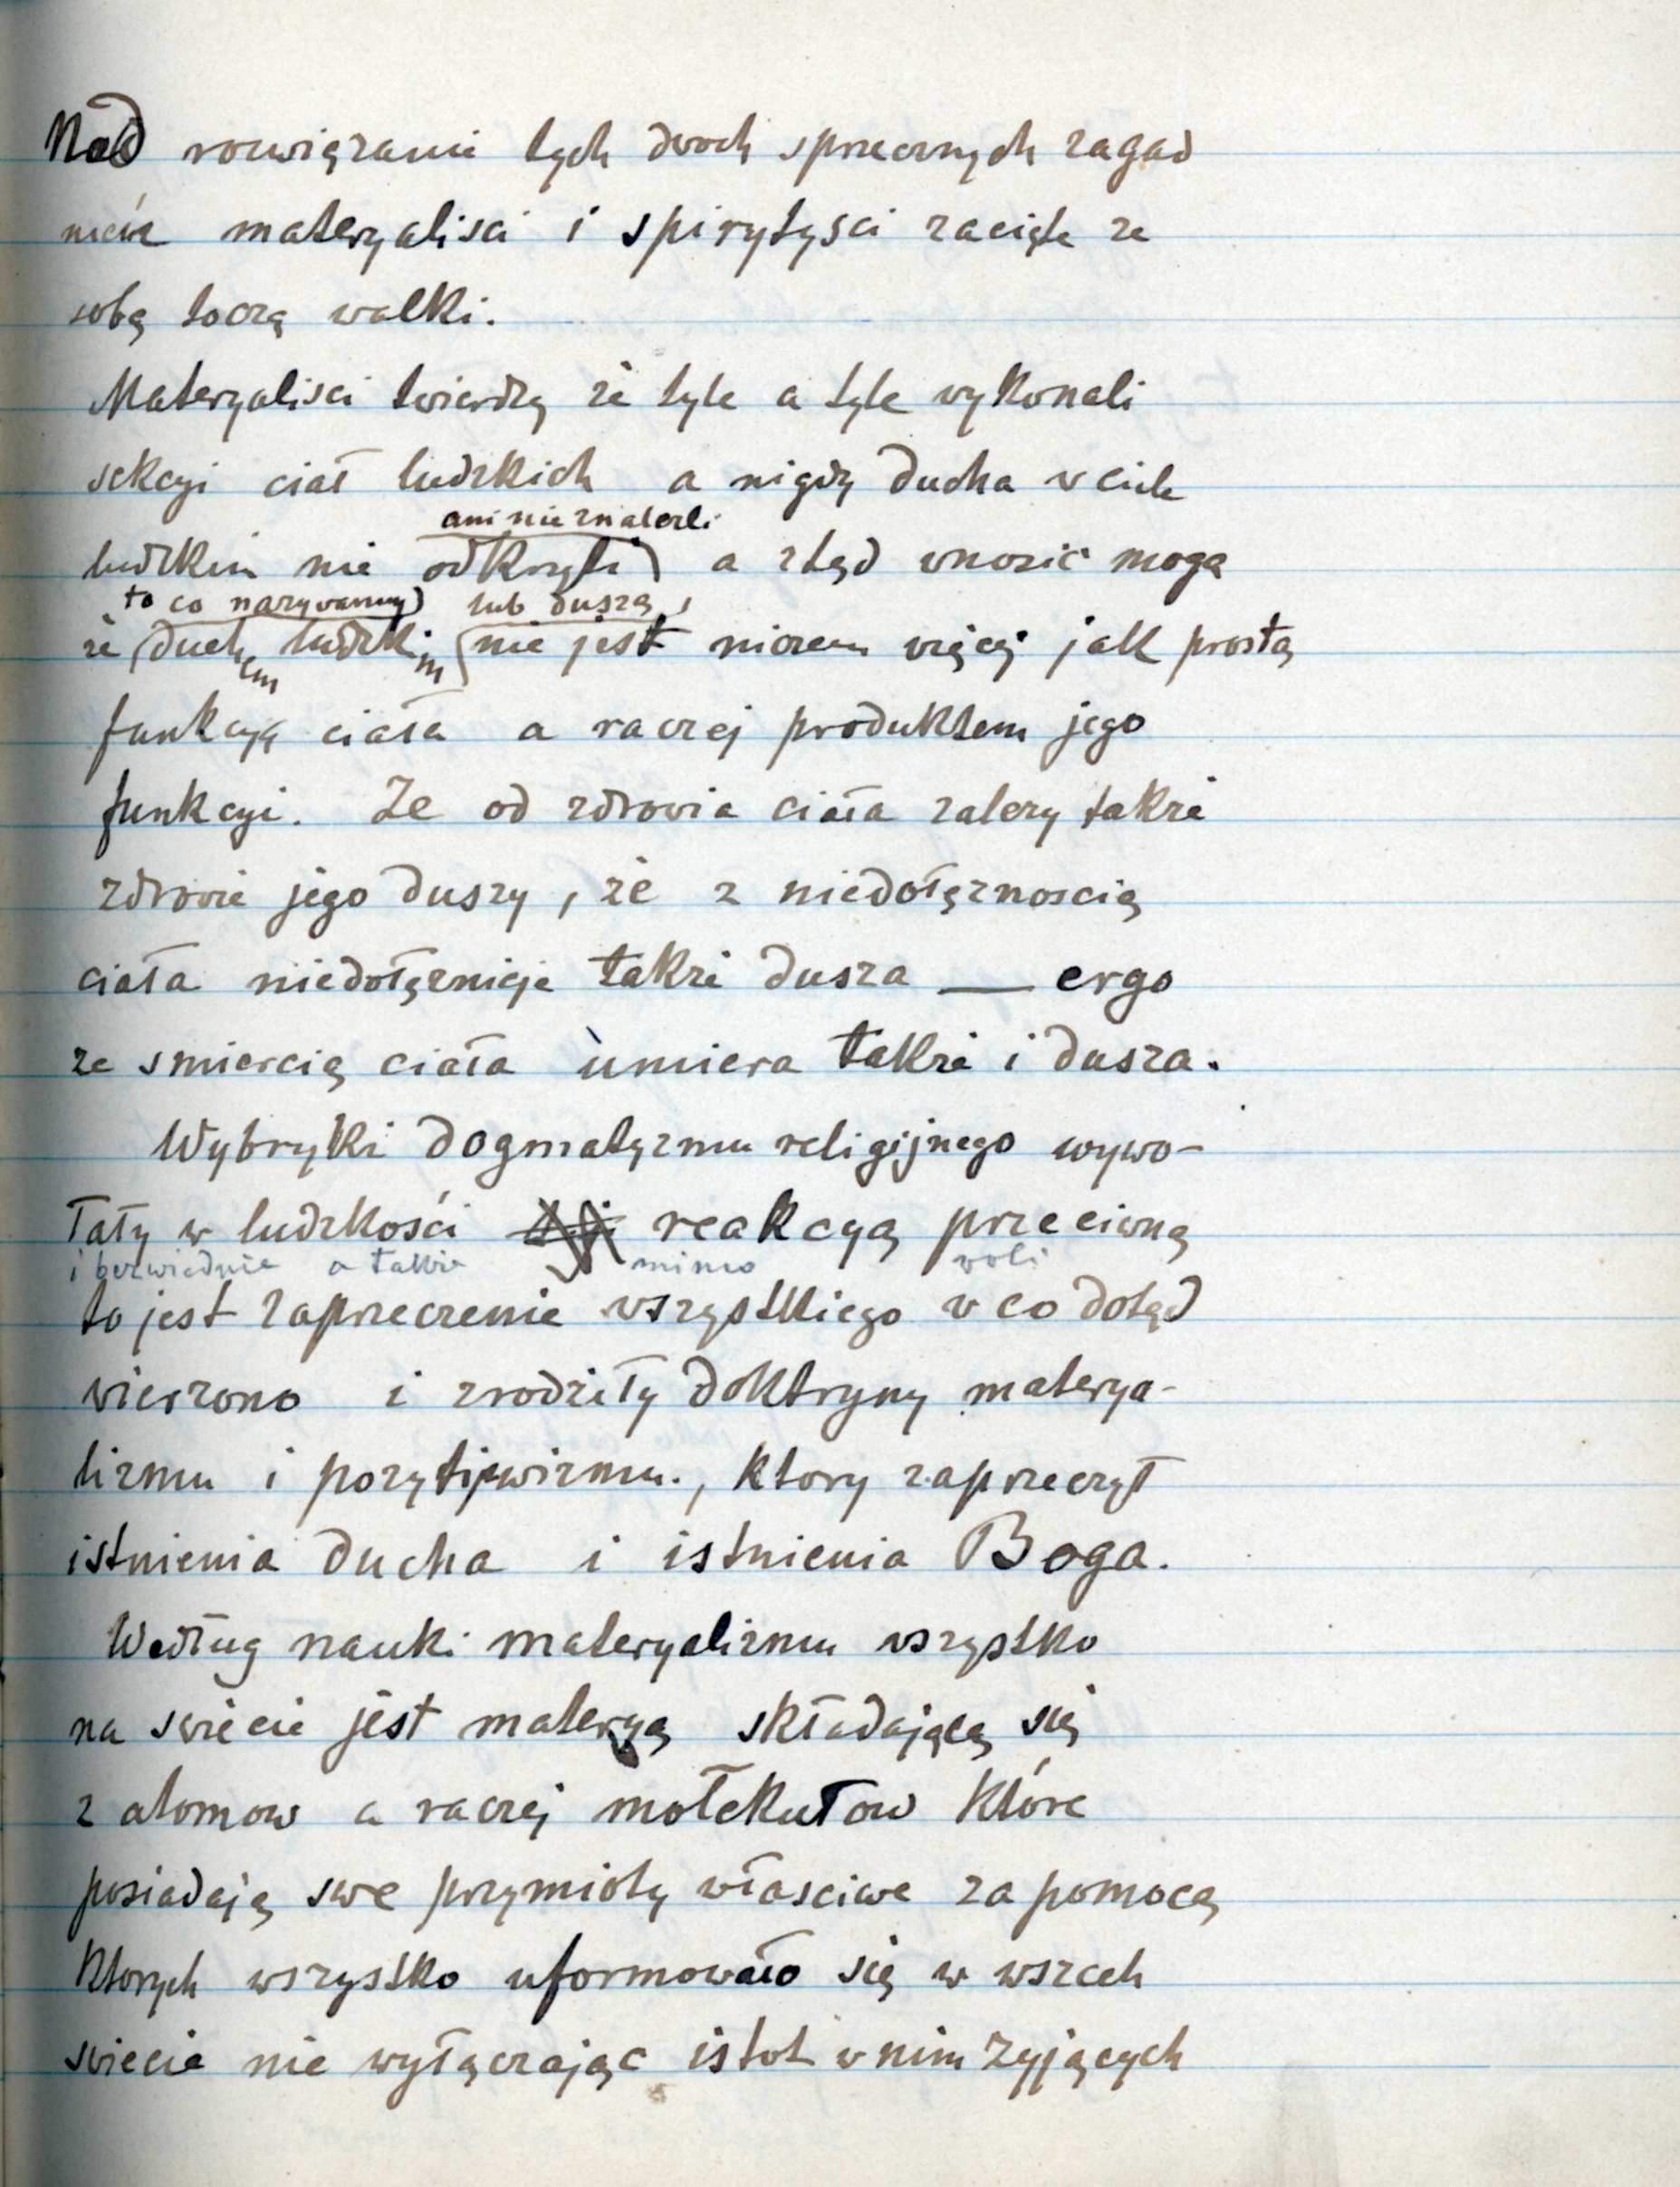 Nad rozwiązanie tych dwoch sprzecznych zagad
nień materyalisci i spirytysci zacięte ze
sobą toczą walki.
Materyalisci twierdzą że tyle a tyle wykonali
sekcyi ciał ludzkich a nigdy ducha w ciele
ani nie znalezli
ludzkim nie odkryli a ztąd wnosic mogą
to co nazywamy lub duszą,
że duchem ludzkim nie jest niczem więcej jak prostą
funkcyą ciała a raczej produktem jego
funkcyi. Ze od zdrowia ciała zalezy takze
zdrowie jego duszy, że z niedołęznoscią
ciała niedołęznieje takze dusza — ergo
ze smiercią ciała umiera takze i dusza.
Wybryki dogmatyzmu religijnego wywo-
łały w ludzkości reakcyą przeciwną
i bezwiednie a takze mimo woli
to jest zaprzeczenie wszystkiego w co dotąd
wierzono i zrodziły doktryny materya-
lizmu i pozytywizmu., ktory zaprzeczył
istnienia ducha i istnienia Boga.
Według nauki materyalizmu wszystko
na swiecie jest materyą składającą się
z atomow a raczej mołekułow które
posiadają swe przymioty własciwe za pomocą
ktorych wszystko uformowało się w wszech
swiecie nie wyłączając istot w nim zyjących